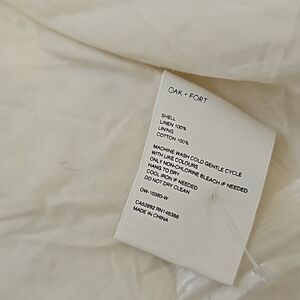 OAK + FORT
SHELL
LINEN 100%
LINING
COTTON 100%
MACHINE WASH COLD GENTLE CYCLE
WITH LIKE COLOURS
ONLY NON-CHLORINE BLEACH IF NEEDED
HANG TO DRY
COOL IRON IF NEEDED
DO NOT DRY CLEAN
OW-10380-W
CA52892 RN148358
MADE IN CHINA